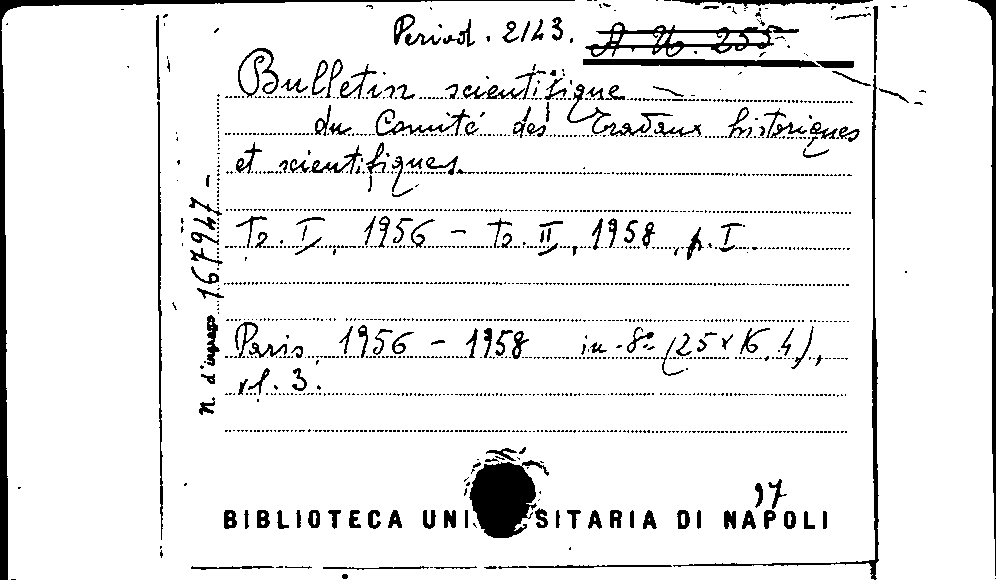 Period. 2143. A. U. 255
Bulletin scientifique
du Comité des Travaux historiques
et scientifiques.
To. I, 1956 - To. II, 1958, p. I.
Paris, 1956 - 1958 in-8° (25x16,4),
vl. 3.
N. d'ingresso 167947-
97
BIBLIOTECA UNI SITARIA DI NAPOLI